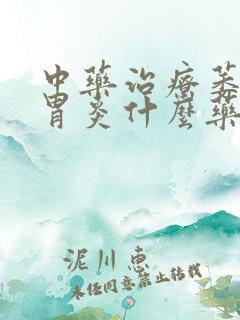 中藥治療萎
胃炎什麼藥
泥川惠
未经同意禁止转载